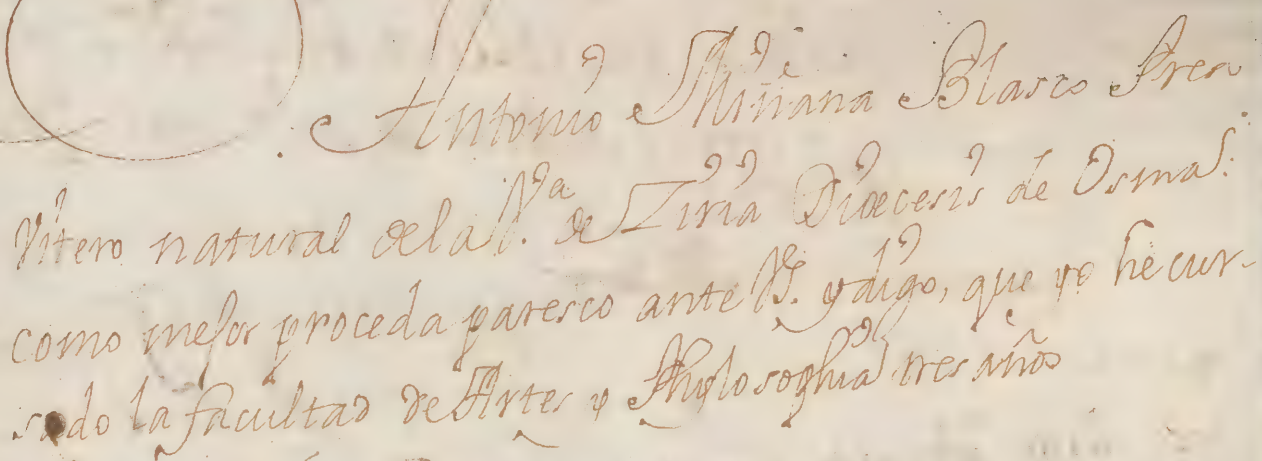 Antonio Miñana Blasco Pres
vitero natural de la V.ª de Ziria Diœcesis de Osma:
como mejor proceda paresco ante V. y digo, que yo he cur-
sado la facultad de Artes y Phylosophia tres años